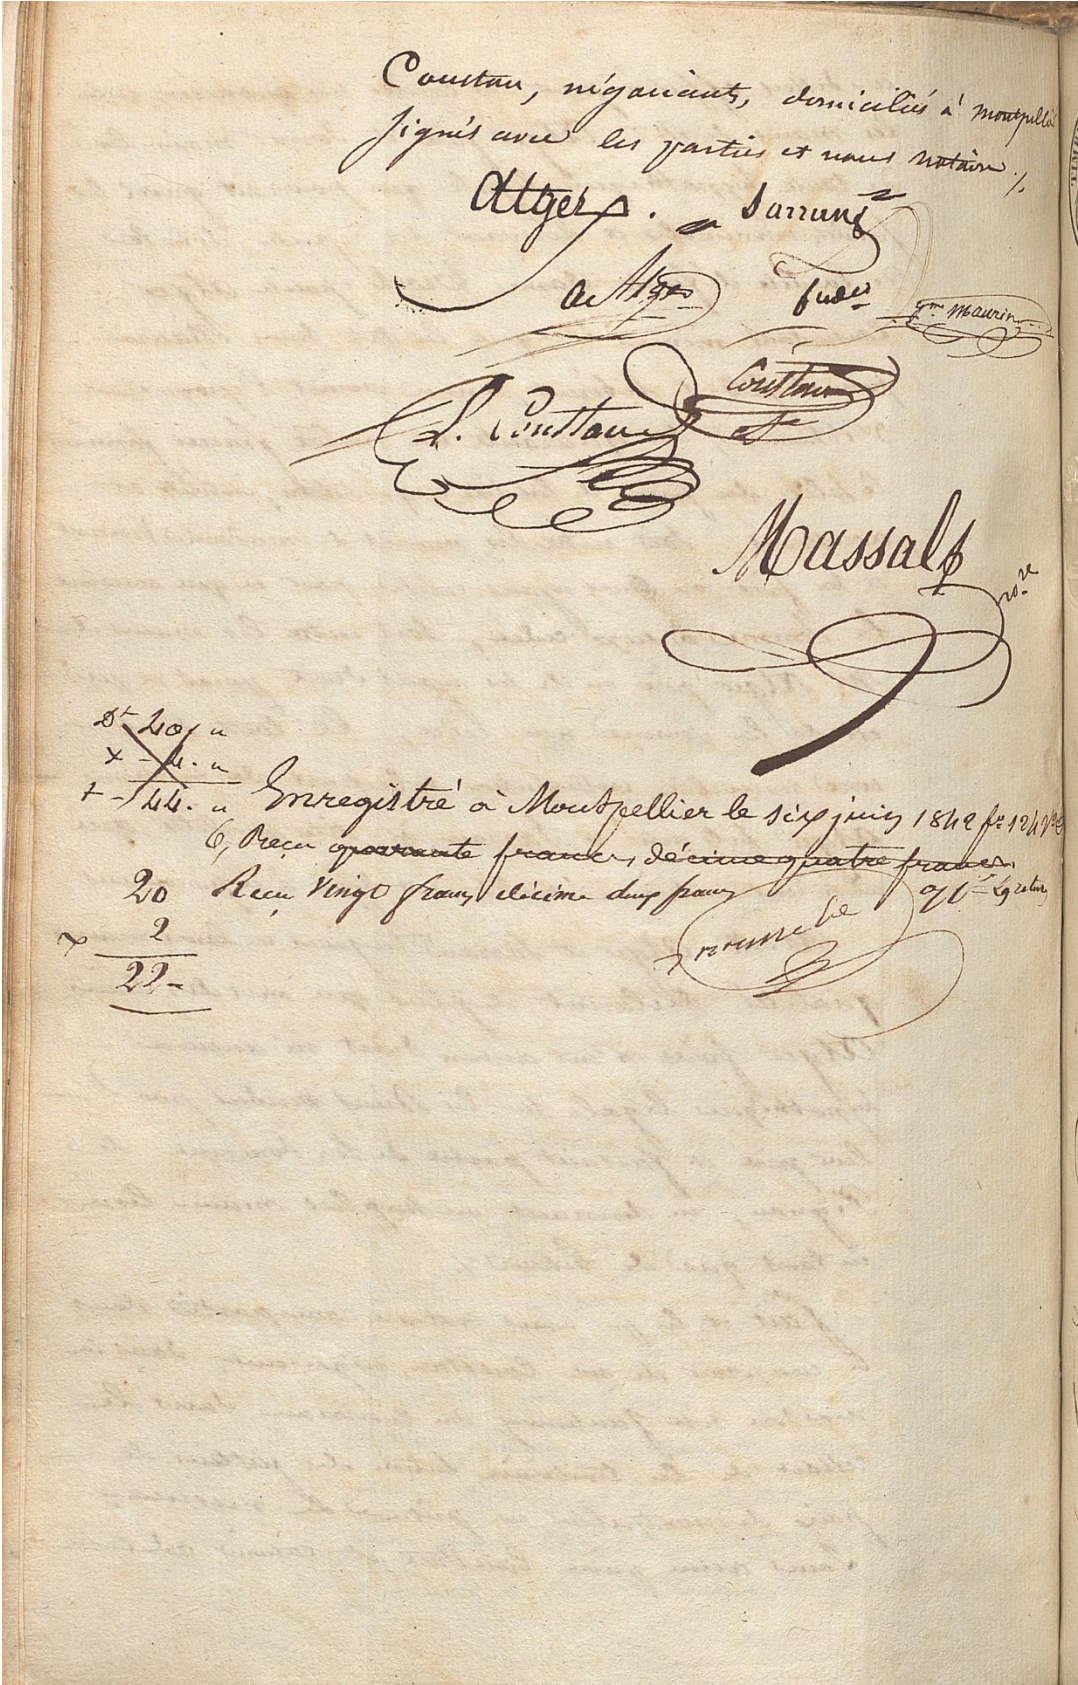 Coustan, négociants, domiciliés à Montpellier
signés avec les parties et nous notaire ./.
Atger . Sarrun
A. Atger
Gme Maurin
Coustan
L. Coustau
Massal
nore
Dt 40 "
x - 4 - "
+ - 44 - "
Enregistré à Montpellier le six juin 1842 fo 124 Vo C
6, Reçu quarante francs, décime quatre francs.
20 Reçu vingt francs décime deux francs
2
22 -